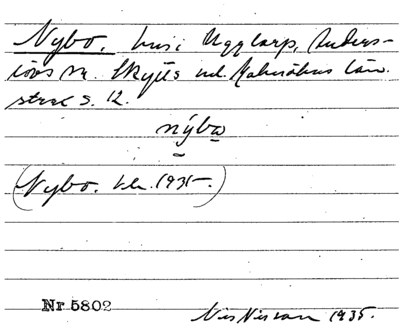 Nybo, hus i Ugglarp, Anders-
lövs sn. Skytts hd. Malmöhus län.
s. 12.
nýbo
(Nybo. 1935.)
Nr 5802
Nils Nilsson 1935.